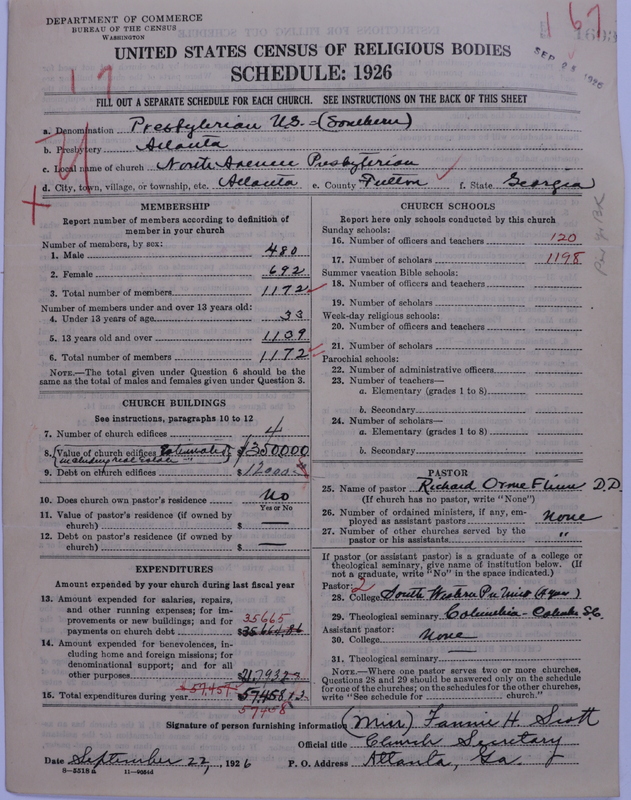 DEPARTMENT OF COMMERCE
BUREAU OF THE CENSUS
WASHINGTON
167
SEP 24 1926
UNITED STATES CENSUS OF RELIGIOUS BODIES
SCHEDULE: 1926
17
FILL OUT A SEPARATE SCHEDULE FOR EACH CHURCH. SEE INSTRUCTIONS ON THE BACK OF THIS SHEET
a. Denomination Presbyterian U.S. = (Southern)
b. Presbytery Atlanta
c. Local name of church North Avenue Presbyterian
d. City, town, village, or township, etc. Atlanta e. County Fulton f. State Georgia
MEMBERSHIP
Report number of members according to definition of
member in your church
Number of members, by sex:
1. Male 480
2. Female 692
3. Total number of members 1172
Number of members under and over 13 years old:
4. Under 13 years of age 33
5. 13 years old and over 1139
6. Total number of members 1172
NOTE.—The total given under Question 6 should be
the same as the total of males and females given under Question 3.
CHURCH BUILDINGS
See instructions, paragraphs 10 to 12
7. Number of church edifices 4
8. Value of church edifices Estimated $350000
including real estate
9. Debt on church edifices $12000
10. Does church own pastor's residence No
Yes or No
11. Value of pastor's residence (if owned by
church) $ —
12. Debt on pastor's residence (if owned by
church) $ —
EXPENDITURES
Amount expended by your church during last fiscal year
13. Amount expended for salaries, repairs,
and other running expenses; for im-
provements or new buildings; and for 35665
payments on church debt $35664.86
14. Amount expended for benevolences, in-
cluding home and foreign missions; for
denominational support; and for all
other purposes 21793.23
15. Total expenditures during year $57457 57458.13
57458
CHURCH SCHOOLS
Report here only schools conducted by this church
Sunday schools:
16. Number of officers and teachers 120
17. Number of scholars 1198
Summer vacation Bible schools:
18. Number of officers and teachers
19. Number of scholars
Week-day religious schools:
20. Number of officers and teachers
21. Number of scholars
Parochial schools:
22. Number of administrative officers
23. Number of teachers—
a. Elementary (grades 1 to 8)
b. Secondary
24. Number of scholars—
a. Elementary (grades 1 to 8)
b. Secondary
PASTOR
25. Name of pastor Richard Orme Flinn D.D.
(If church has no pastor, write "None")
26. Number of ordained ministers, if any, em-
ployed as assistant pastors None
27. Number of other churches served by the
pastor or his assistants "
If pastor (or assistant pastor) is a graduate of a college or
theological seminary, give name of institution below. (If
not a graduate, write "No" in the space indicated.)
Pastor: 2
28. College South Western
29. Theological seminary Columbia - Columbia S.C.
Assistant pastor:
30. College None
31. Theological seminary —
NOTE.—Where one pastor serves two or more churches,
Questions 28 and 29 should be answered only on the schedule
for one of the churches; on the schedules for the other churches,
write "See schedule for ______ church."
Signature of person furnishing information (Miss) Fannie H. Scott
Official title Church Secretary
Date September 22, 1926 P. O. Address Atlanta, Ga.
8—5518a 11—9054d